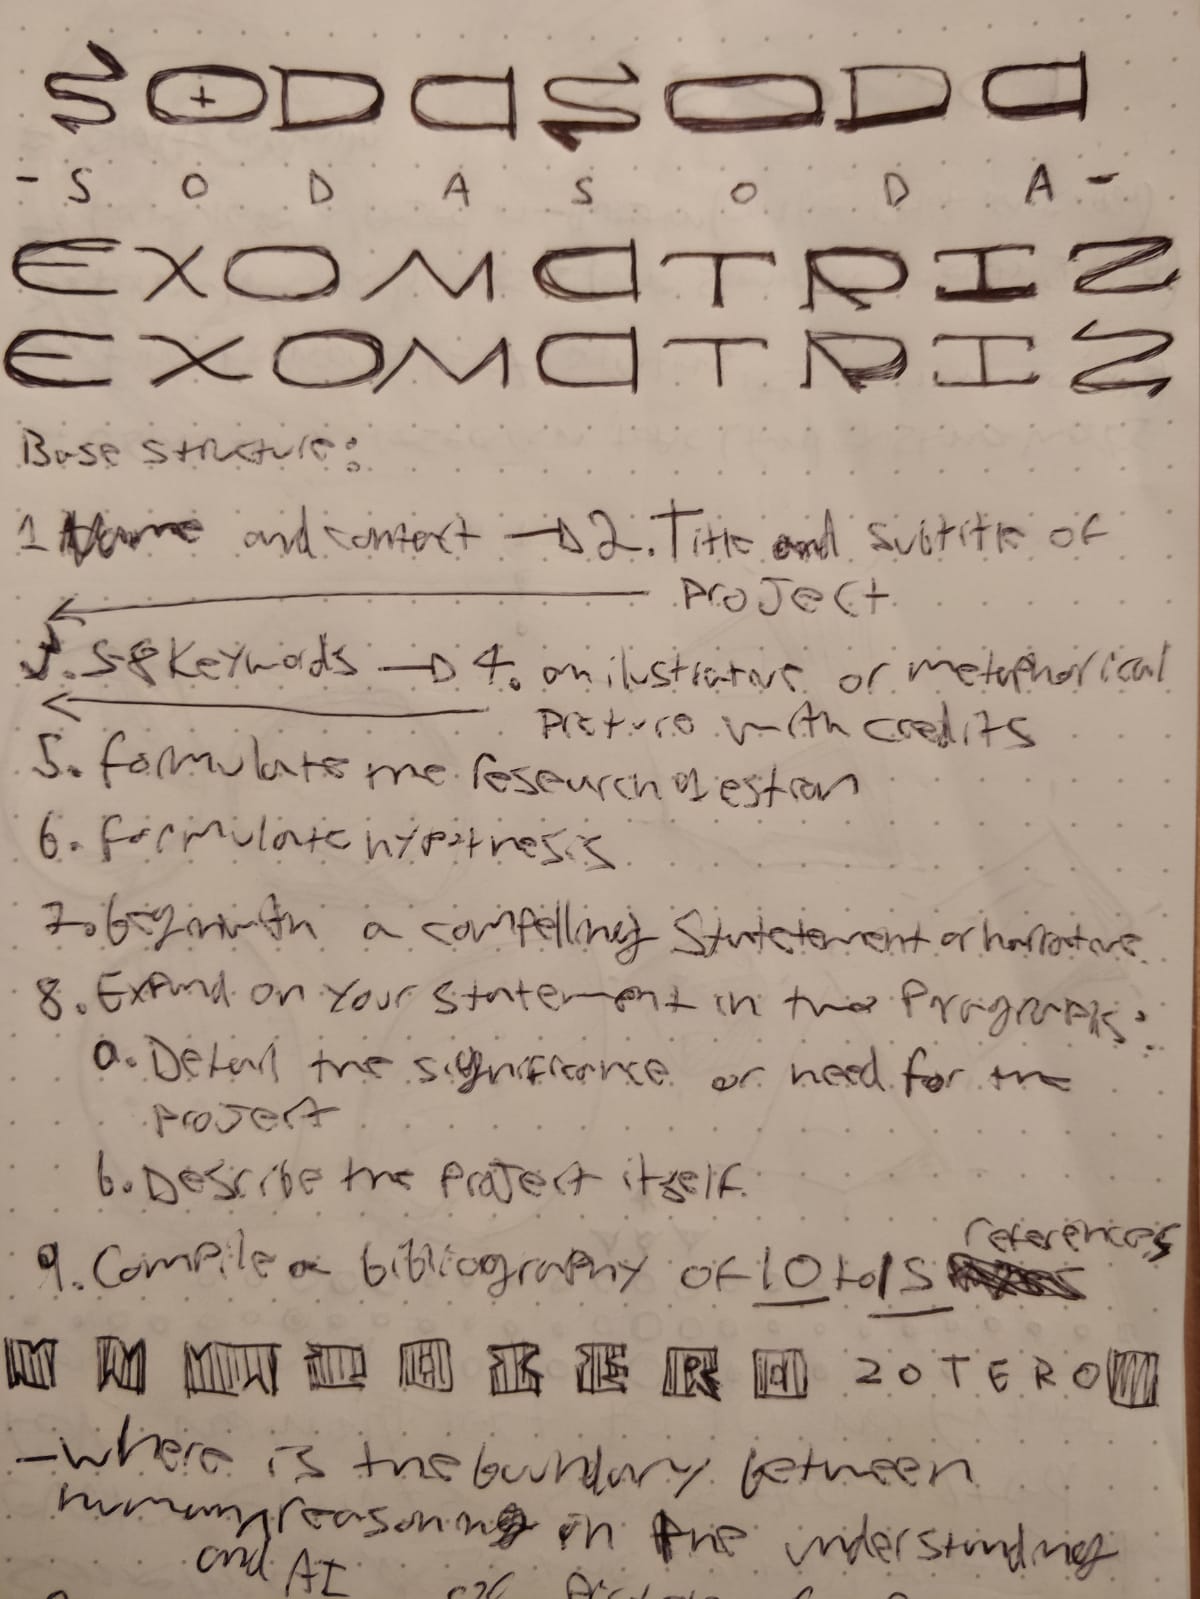 SODASODA
- S O D A S O D A -
EXOMATRIZ
EXOMATRIZ
Base structure:
1 Name and contact → 2. Title and subtitle of
project
3. 5-8 Keywords → 4. an ilustrative or metaphorical
picture with credits
5. formulate the research question
6. formulate hypothesis
7. begin with a compelling Statetement or narrative
8. Expand on your statement in two Pragraphs:
a. Detail the significance or need for the
project
b. Describe the project itself.
9. Compile a bibliography of 10 to 15 references
ZOTERO
- Where is the boundary between
human reasoning in the understanding
and AI